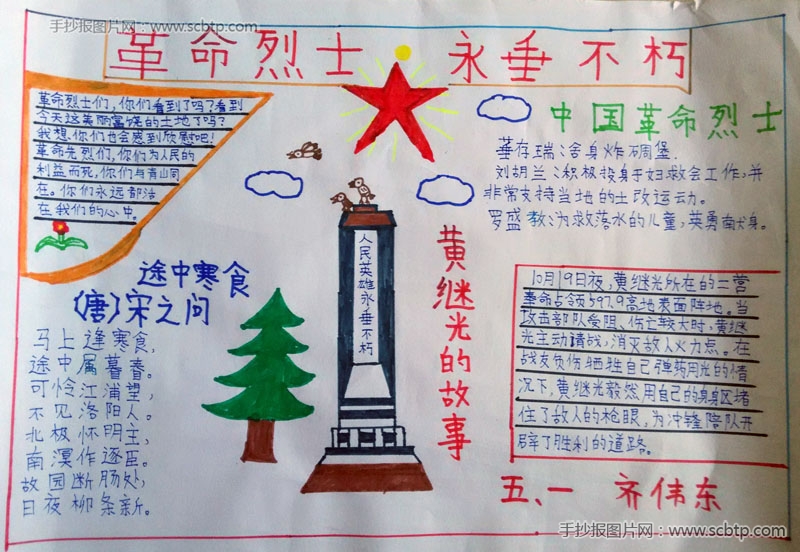 手抄报图片网：www.scbtp.com
革命烈士 永垂不朽
革命烈士们，你们看到了吗？看到
今天这美丽富饶的土地了吗？
我想你们也会感到欣慰吧！
革命先烈们，你们为人民的
利益而死，你们与青山同
在。你们永远都活
在我们的心中。
中国革命烈士
董存瑞：舍身炸碉堡。
刘胡兰：积极投身于妇救会工作，并
非常支持当地的土改运动。
罗盛教：为救落水的儿童，英勇献身。
途中寒食
（唐）宋之问
马上逢寒食，
途中属暮春。
可怜江浦望，
不见洛阳人。
北极怀明主，
南溟作逐臣。
故园断肠处，
日夜柳条新。
人民英雄永垂不朽
黄继光的故事
10月19日夜，黄继光所在的二营
奉命占领597.9高地表面阵地。当
攻击部队受阻、伤亡较大时，黄继
光主动请战，消灭敌人火力点。在
战友负伤牺牲自己弹药用光的情
况下，黄继光毅然用自己的身躯堵
住了敌人的枪眼，为冲锋陪队开
辟了胜利的道路。
五、一 齐伟东
手抄报图片网：www.scbtp.com